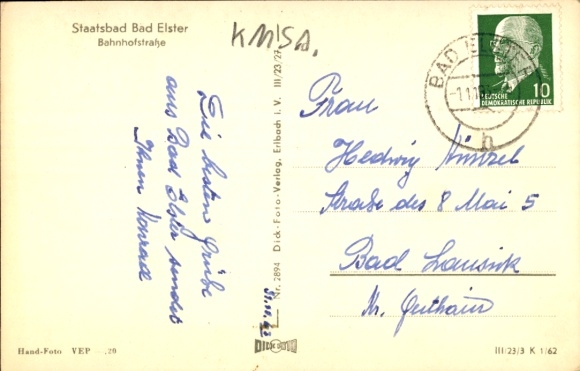 Staatsbad Bad Elster
Bahnhofstraße
KMSA.
Die besten Grüße
aus Bad Elster sendet
Ihnen Konrad
Hand-Foto VEP -,20
Nr. 2894 Dick-Foto-Verlag, Erlbach i. V. III/23/27
DICK
BAD ELSTER
h
10
DEUTSCHE
DEMOKRATISCHE REPUBLIK
Frau
Hedwig
Straße des 8 Mai 5
Bad Lausick
Kr. Geithain
III/23/3 K 1/62